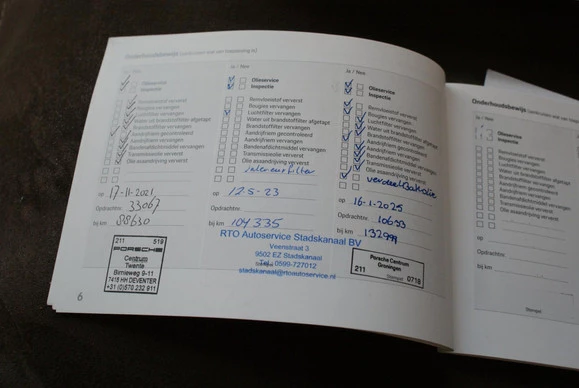 Onderhoudsbewijs (aankruisen wat van toepassing is)
Ja / Nee
Olieservice
Inspectie
Remvloeistof ververst
Bougies vervangen
Luchtfilter vervangen
Water uit brandstoffilter afgetapt
Brandstoffilter vervangen
Aandrijfriem gecontroleerd
Aandrijfriem vervangen
Bandenafdichtmiddel vervangen
Transmissieolie ververst
Olie asaandrijving ververst
op 17-11-2021
Opdrachtnr. 33067
bij km 88630
211 519
PORSCHE
Centrum
Twente
Birnieweg 9-11
7418 HH DEVENTER
+31 (0)570 232 911
6
Ja / Nee
Olieservice
Inspectie
Remvloeistof ververst
Bougies vervangen
Luchtfilter vervangen
Water uit brandstoffilter afgetapt
Brandstoffilter vervangen
Aandrijfriem gecontroleerd
Aandrijfriem vervangen
Bandenafdichtmiddel vervangen
Transmissieolie ververst
Olie asaandrijving ververst
interieurfilter
op 12-5-23
Opdrachtnr.
bij km 104335
RTO Autoservice Stadskanaal BV
Veenstraat 3
9502 EZ Stadskanaal
Tel. 0599-727012
stadskanaal@rtoautoservice.nl
Ja / Nee
Olieservice
Inspectie
Remvloeistof ververst
Bougies vervangen
Luchtfilter vervangen
Water uit brandstoffilter afgetapt
Brandstoffilter vervangen
Aandrijfriem gecontroleerd
Aandrijfriem vervangen
Bandenafdichtmiddel vervangen
Transmissieolie ververst
Olie asaandrijving ververst
verdeelbakolie
op 16-1-2025
Opdrachtnr.
bij km
Porsche Centrum
Groningen
211 Stempel 0718
Onderhoudsbewijs (aankruisen wat van toepassing is)
Olieservice
Inspectie
Remvloeistof ververst
Bougies vervangen
Luchtfilter vervangen
Water uit brandstoffilter
Brandstoffilter vervangen
Aandrijfriem gecontroleerd
Aandrijfriem vervangen
Bandenafdichtmiddel
Transmissieolie ververst
Olie asaandrijving ververst
op
Opdrachtnr.
bij km
Stempel